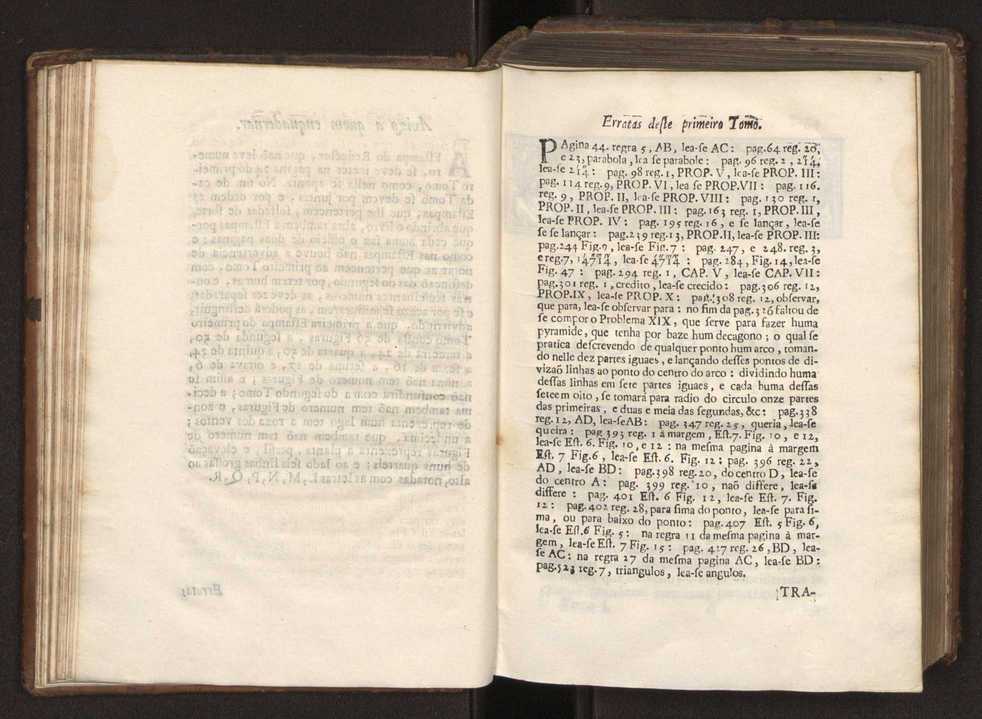 Erratas deſte primeiro Tomo.
PAgina 44. regra 5, AB, lea-ſe AC: pag. 64 reg. 20,
e 23, parabola, lea ſe parabole: pag. 96 reg. 2,
lea-ſe pag. 98 reg. 1, PROP. V, lea-ſe PROP. III:
pag. 114 reg. 9, PROP. VI, lea ſe PROP. VII: pag. 116.
reg. 9, PROP. II, lea-ſe PROP. VIII: pag. 130 reg. 1,
PROP. II, lea-ſe PROP. III: pag. 163 reg. 1, PROP. III,
lea-ſe PROP. IV: pag. 195 reg. 16, e ſe lançar, lea-ſe
ſe ſe lançar: pag. 239 reg. 13, PROP. II, lea-ſe PROP. III:
pag. 244 Fig. 9, lea-ſe Fig. 7: pag. 247, e 248. reg. 3,
e reg. 7, lea-ſe pag. 284, Fig. 14, lea-ſe
Fig. 47: pag. 294 reg. 1, CAP. V, lea-ſe CAP. VII:
pag. 301 reg. 1, credito, lea-ſe crecido: pag. 306 reg. 12,
PROP. IX, lea-ſe PROP. X: pag. 308 reg. 12, obſervar,
que para, lea-ſe obſervar para: no fim da pag. 316 faltou de
ſe compor o Problema XIX, que ſerve para fazer huma
pyramide, que tenha por baze hum decagono; o qual ſe
pratica deſcrevendo de qualquer ponto hum arco, toman-
do nelle dez partes iguaes, e lançando deſſes pontos de di-
vizaõ linhas ao ponto do centro do arco: dividindo huma
deſſas linhas em ſete partes iguaes, e cada huma deſſas
ſete em oito, ſe tomará para radio do circulo onze partes
das primeiras, e duas e meia das ſegundas, &c: pag. 338
reg. 12, AD, lea-ſe AB: pag. 347 reg. 25, queria, lea-ſe
queira: pag 393 reg. 1 à margem, Eſt. 7. Fig. 10, e 12,
lea-ſe Eſt. 6. Fig. 10, e 12: na meſma pagina à margem
Eſt. 7 Fig. 6, lea-ſe Eſt. 6. Fig. 12: pag. 396 reg. 22,
AD, lea-ſe BD: pag. 398 reg. 20, do centro D, lea-ſe
do centro A: pag. 399 reg. 10, naõ differe, lea-ſe
differe: pag. 401 Eſt. 6 Fig. 12, lea-ſe Eſt. 7. Fig.
12: pag. 402 reg. 28, para ſima do ponto, lea-ſe para ſi-
ma, ou para baixo do ponto: pag. 407 Eſt. 5 Fig. 6,
lea-ſe Eſt. 6 Fig. 5: na regra 11 da meſma pagina à mar-
gem, lea-ſe Eſt. 7 Fig. 15: pag. 417 reg. 26, BD, lea-
ſe AC: na regra 27 da meſma pagina AC, lea-ſe BD:
pag. 523 reg. 7, triangulos, lea-ſe angulos.
TRA-